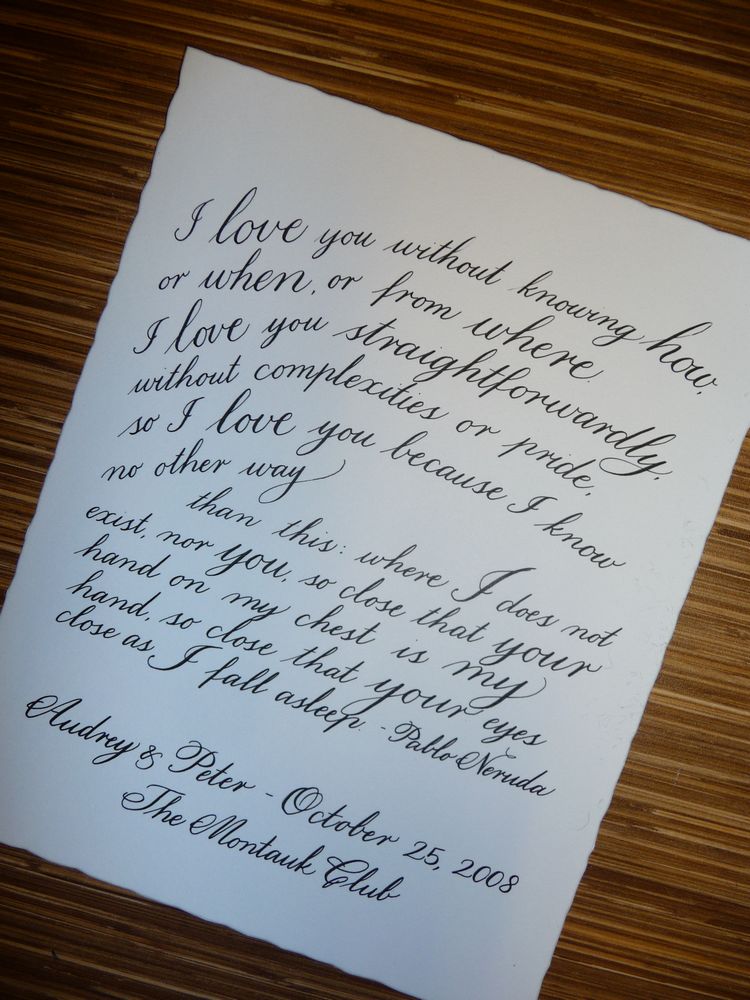 I love you without knowing how,
or when, or from where.
I love you straightforwardly,
without complexities or pride,
so I love you because I know
no other way
than this: where I does not
exist, nor you, so close that your
hand on my chest is my
hand, so close that your eyes
close as I fall asleep. - Pablo Neruda
Audrey & Peter - October 25, 2008
The Montauk Club